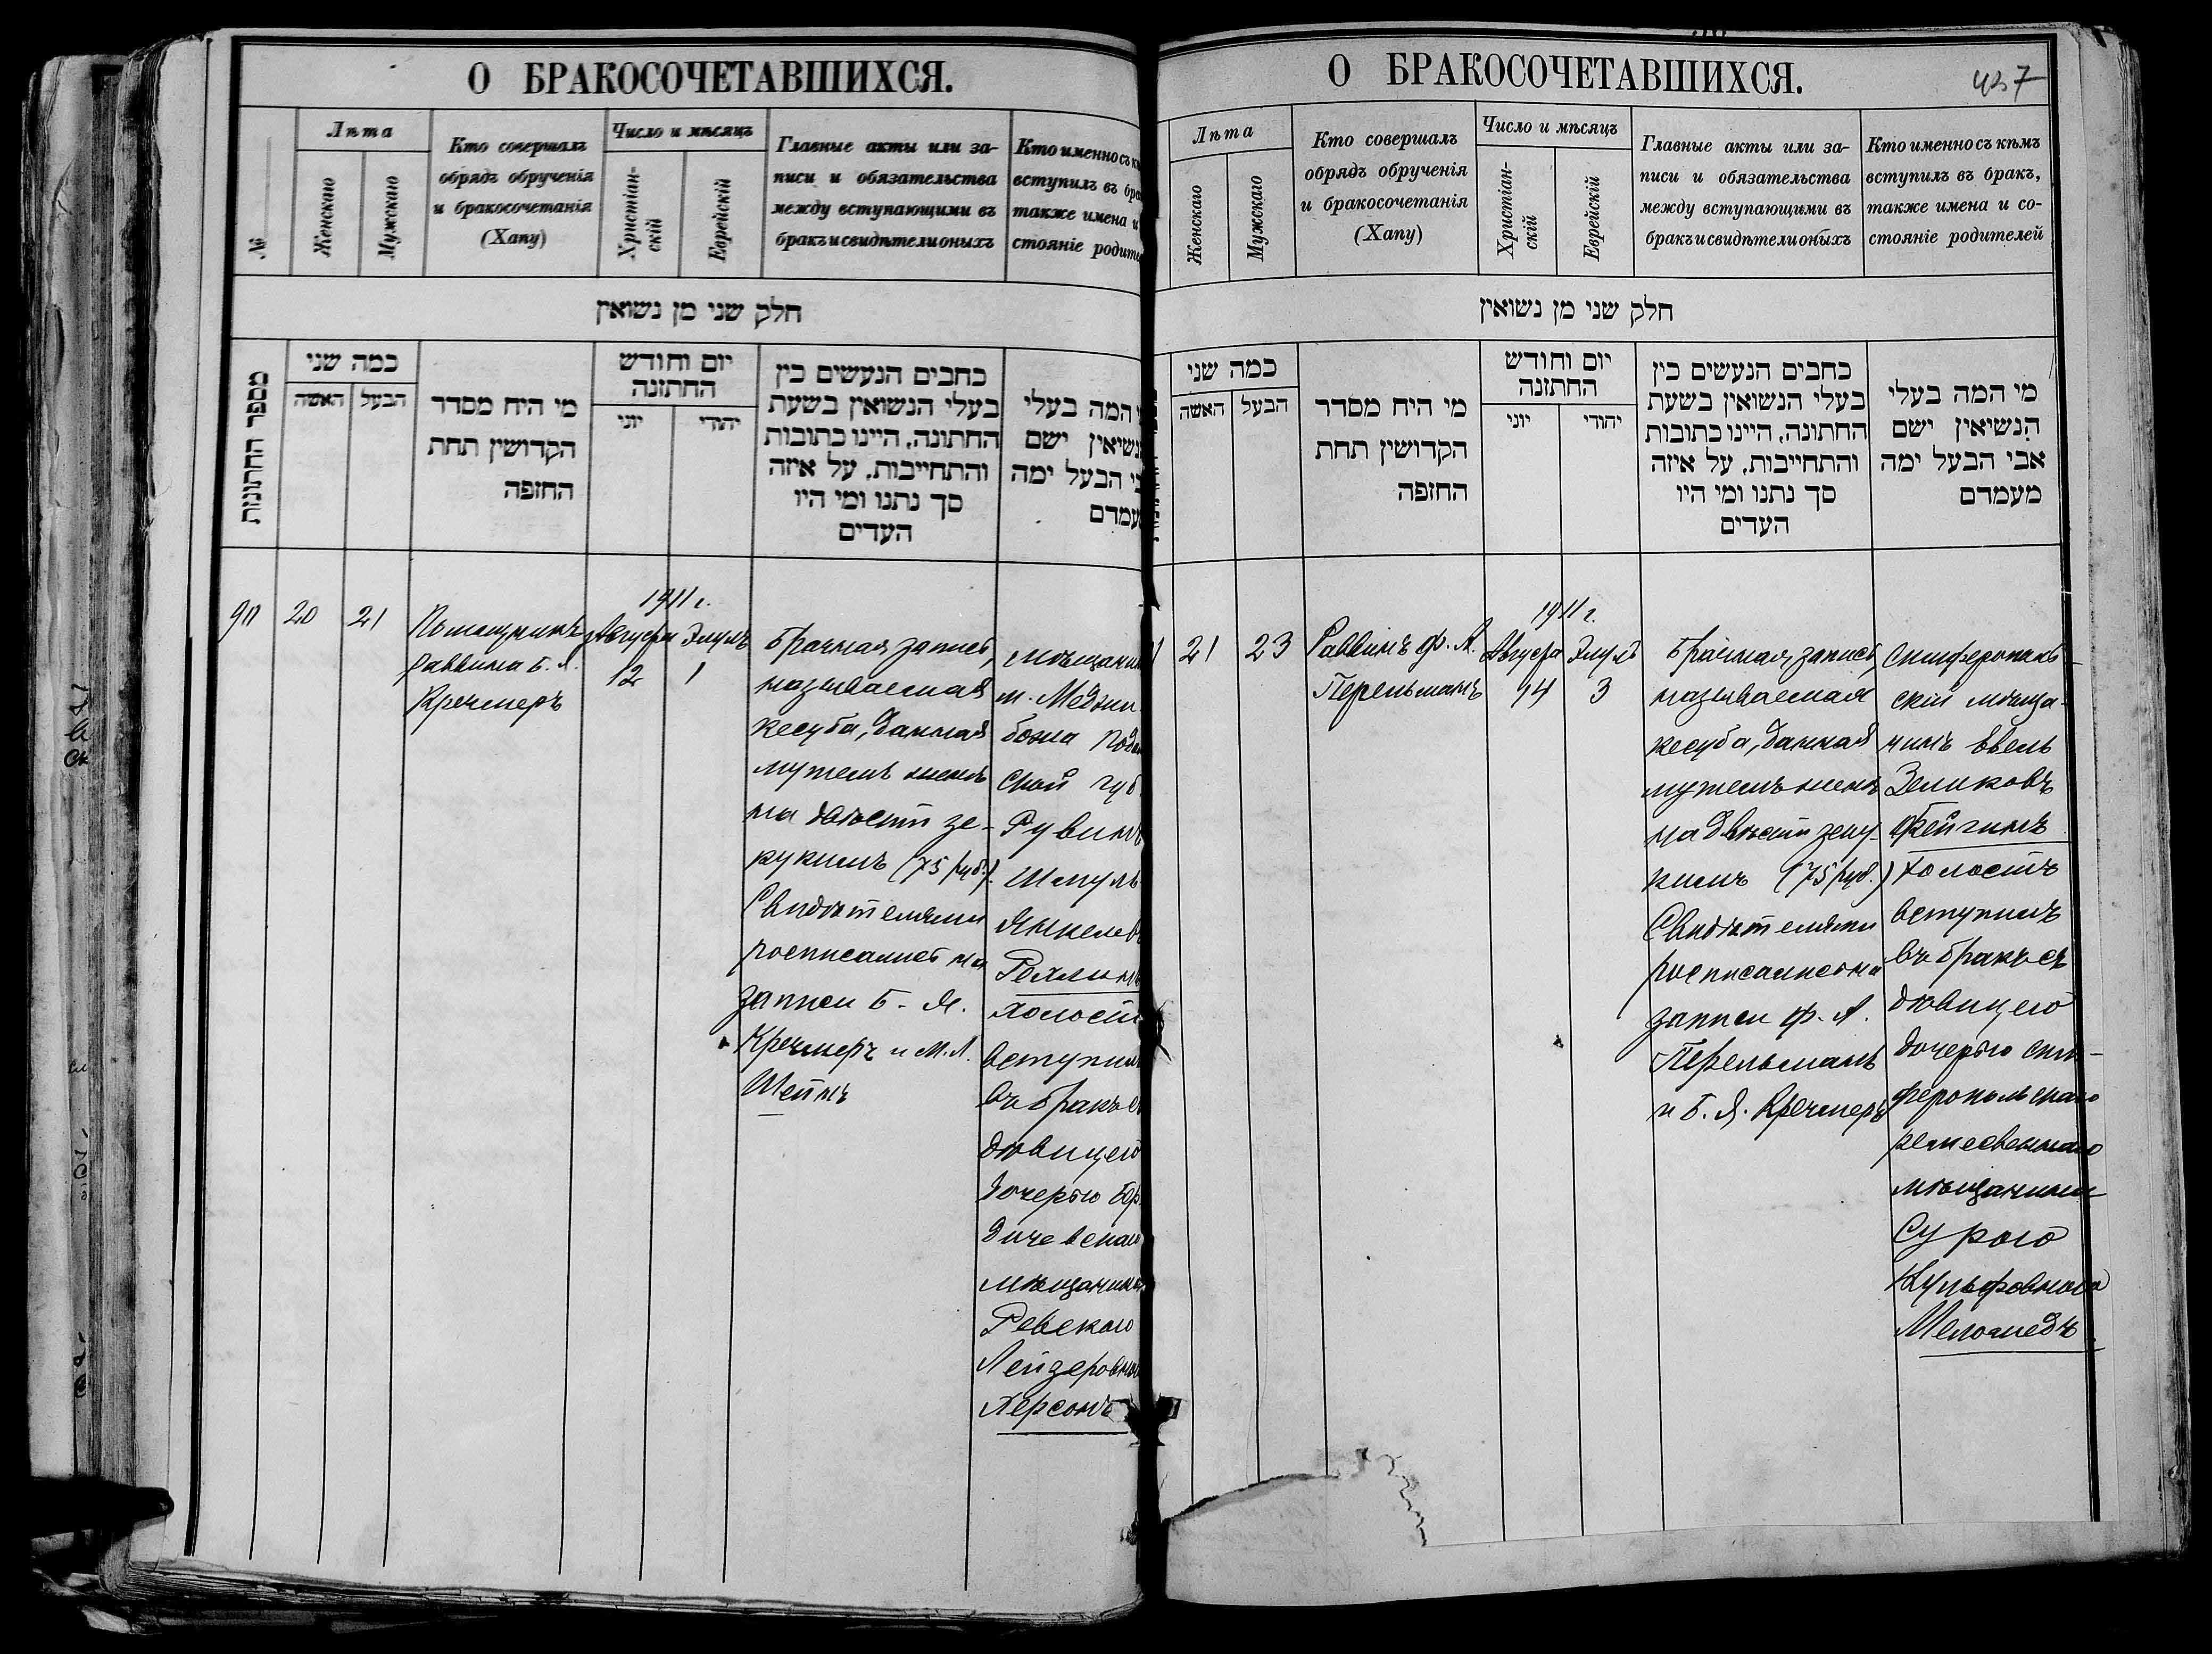 О БРАКОСОЧЕТАВШИХСЯ.
№
Лѣта
Женскаго
Мужскаго
Кто совершалъ
обрядъ обрученія
и бракосочетанія
(Хапу)
Число и мѣсяцъ
Христіан-
скій
Еврейскій
Главные акты или за-
писи и обязательства
между вступающими въ
бракъ и свидѣтели оныхъ
Кто именно съ
вступилъ въ
также имена и
стояніе
חלק שני מן נשואין
מספר החתונות
כמה שני
האשה
הבעל
מי היח מסדר
הקדושין תחת
החופה
יום וחודש
החתונה
יוני
יהודי
כתבים הנעשים בין
בעלי הנשואין בשעת
החתונה, היינו כתובות
והתחייבות, על איזה
סך נתנו ומי היו
העדים
המה בעלי
ישם
הבעל ימה
90
20
21
Помощникъ
раввина Б. Я.
Кречмеръ
1911 г.
Августа
12
Элулъ
1
Брачная запись,
называемая
кесуба, данная
мужемъ женѣ
на двѣсти зе-
кукимъ (75 руб.).
Свидѣтелями
росписались на
записи Б. Я.
Кречмеръ и М. Л.
Штейнъ
м. Меджи
божа
ской губ.
Рувинъ
Шмуль
холостъ
вступилъ
въ бракъ съ
дѣвицею
дочерью Бер
дичевскаго
мѣщанина
Ревекою
Лейзеровною
Херсонъ
О БРАКОСОЧЕТАВШИХСЯ.
437
Лѣта
Женскаго
Мужскаго
Кто совершалъ
обрядъ обрученія
и бракосочетанія
(Хапу)
Число и мѣсяцъ
Христіан-
скій
Еврейскій
Главные акты или за-
писи и обязательства
между вступающими въ
бракъ и свидѣтели оныхъ
Кто именно съ кѣмъ
вступилъ въ бракъ,
также имена и со-
стояніе родителей
חלק שני מן נשואין
כמה שני
האשה
הבעל
מי היח מסדר
הקדושין תחת
החופה
יום וחודש
החתונה
יוני
יהודי
כתבים הנעשים בין
בעלי הנשואין בשעת
החתונה, היינו כתובות
והתחייבות, על איזה
סך נתנו ומי היו
העדים
מי המה בעלי
הנשיאין ישם
אבי הבעל ימה
מעמדם
21
23
Раввинъ Ф. А.
Перельманъ
1911 г.
Августа
14
Элулъ
3
Брачная запись,
называемая
кесуба, данная
мужемъ женѣ
на двѣсти зеку-
кимъ (75 руб.)
Свидѣтелями
росписались на
записи Ф. А.
Перельманъ
и Б. Я. Кречмеръ
Симферополь-
скій мѣща-
нинъ Евель
Зеликовъ
Фейгинъ
холостъ
вступилъ
въ бракъ съ
дѣвицею
дочерью сим-
феропольскаго
мѣщанина
Сурою
Меламедъ